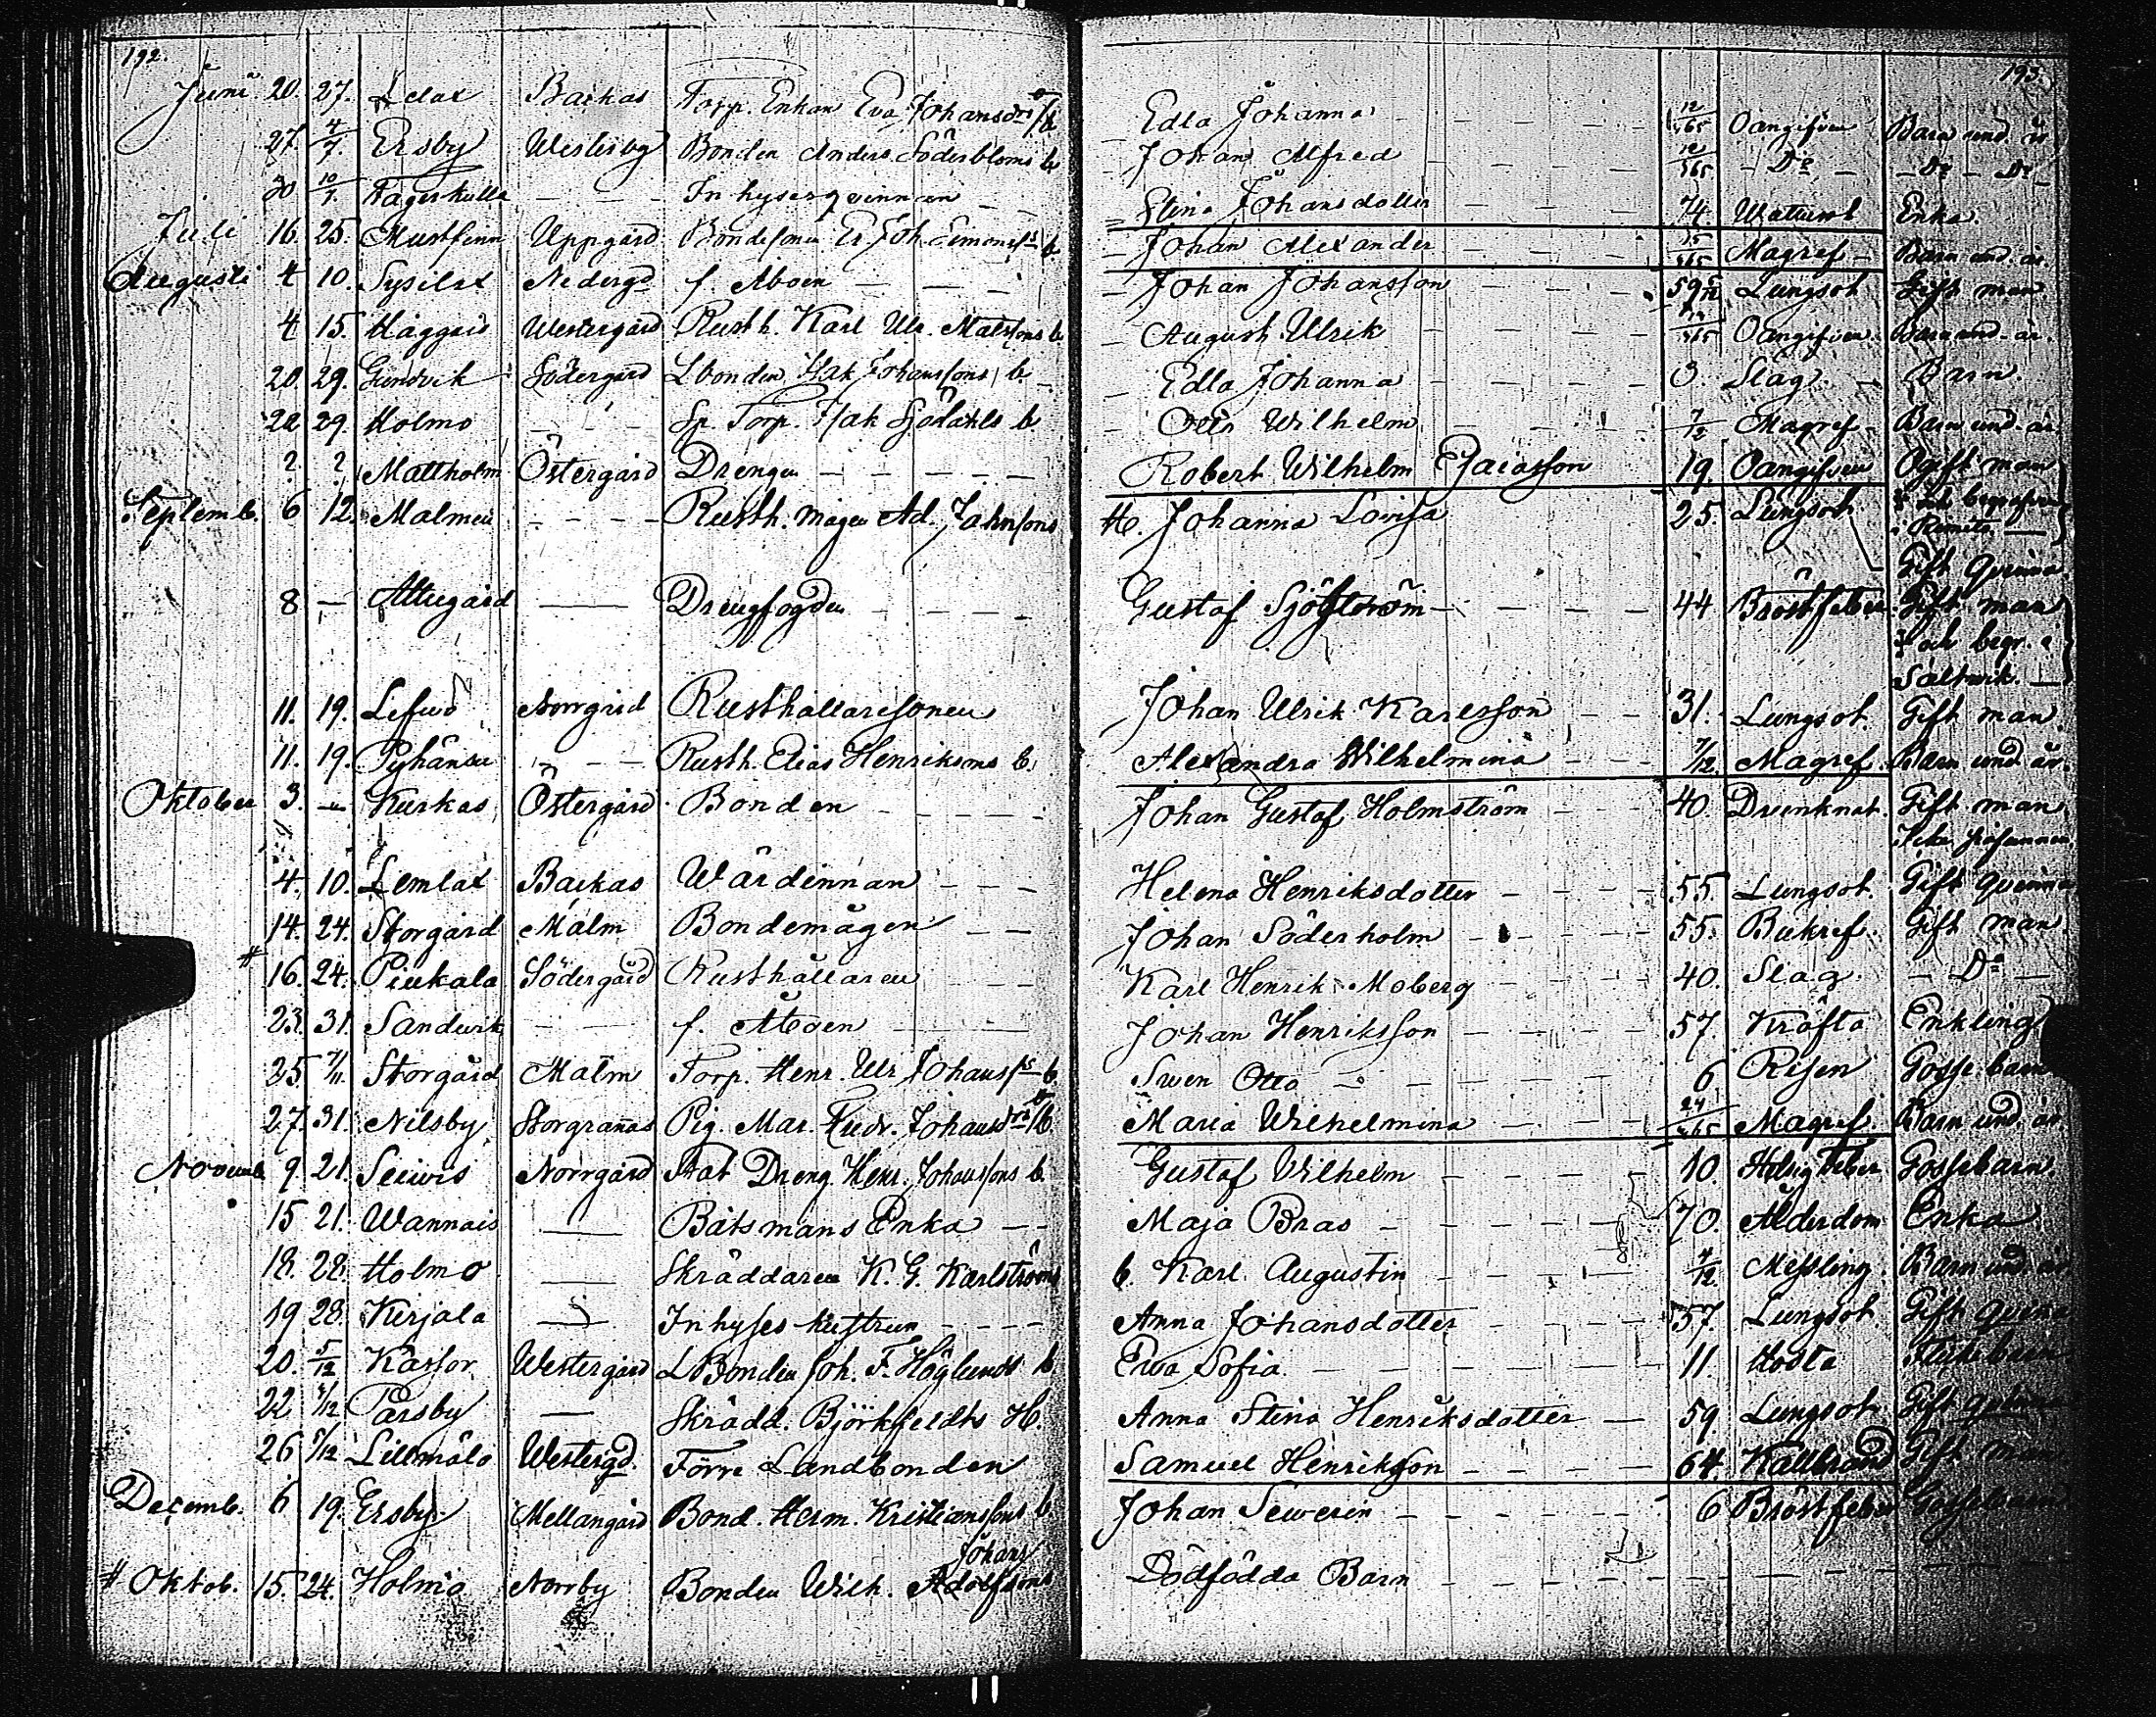 192. 193.
Juni 20. 27. Lelax Backas Torp. Enkan Eva Johansdrs b Edla Johanna 12/365 Oangifven Barn und. år
27. 4/7. Ersby Westerby Bonden Anders Söderbloms b Johan Alfred 12/365 D:o D:o D:o
30 10/7. Fagerkulla Inhyserqvinnan Stina Johansdotter 74 Wattusot Enka
Juli 16. 25. Mustfinn Uppgård Bondesonen Er. Joh. Simonss b Johan Alexander 15/365 Magref Barn und. år.
Augusti 4 10. Sysilax Nederg:d f. Åboen Johan Johansson 59 Lungsot Gift man
4 15. Haggais Westergård Rusth. Karl Ulr. Matssons b August Ulrik /365 Oangifven Barn und. år.
20. 29. Gundvik Södergård Lbonden Isak Johanssons b. Edla Johanna 3. Slag. Barn.
22 29. Holmo Sp. Torp. Isak Sjödahls b Otto Wilhelm 7/12 Magref Barn und. år
? ? Mattholm Östergård Drengen Robert Wilhelm Esaiasson 19. Oangifven Ogift man
Septemb. 6 12. Malmen Rusth. mågen Ad. Jahnsons H. Johanna Lovisa 25. Lungsot † och begrafven
i Rimito
Gift Qvinna
8 — Attugård — Drengfogden Gustaf Sjöström 44 Bröstfeber Gift man
† och begr. i
Saltvik.
11. 19. Lefvo Norrgrd Rusthållaresonen Johan Ulrik Karlsson 31. Lungsot. Gift man
11. 19. Pyhänsu Rusth. Elias Henriksons b. Alexandra Wilhelmina 7/12. Magref. Barn und år.
Oktober 3. — Kurkas Östergård Bonden Johan Gustaf Holmström 40. Drunknat. Gift man
4. 10. Lemlax Backas Wärdinnan Helena Henriksdotter 55. Lungsot. Gift qvinna
14. 24. Storgård Malm Bondemågen Johan Söderholm 55. Bukref. Gift man
# 16. 24. Piukala Södergård Rusthållaren Karl Henrik Moberg 40. Slag. D:o
23. 31. Sandvik f. Åboen Johan Henriksson 57. Kräfta Enkling
25. 7/11. Storgård Malm Torp. Henr. Ulr. Johanss:s b. Swen Otto 6 Risen Gosse barn
27. 31. Nilsby Storgrañas Pig. Mar. Fredr. Johansdrs b. Maria Wilhelmina 24/365 Magref. Barn und. år
Novemb. 9. 21. Seivis Norrgård Stat Dreng Henr. Johanssons b. Gustaf Wilhelm 10. Hetsig Feber Gossebarn
15 21. Wannais — Båtsmans Enka Maja Bras 70. Ålderdom Enka
18. 28. Holmo — Skräddaren K. G. Karlströms b. Karl Augustin /12. Messling. Barn und år
19 28. Kirjala — Inhyses hustrun Anna Johansdotter 57. Lungsot. Gift qvinna
20. 5/12 Kassor Westergård L Bonden Joh. F. Höglunds b Ewa Sofia 11. Hosta Flickebarn
22 /12 Parsby — Skrädd. Björkfeldts H. Anna Stina Henriksdotter 59. Lungsot Gift qvinna
26 5/12 Lillmälö Westergd. Förre Landbonden Samuel Henriksson 64. Kallbrand Gift man
Decemb. 6 19. Ersby. Mellangård Bond. Herm. Kristianssons b. Johan Sewerin 6 Bröstfeber Gossebarn
Johans
# Oktob. 15. 24. Holmo Norrby Bonden Wilh. Adolfsons Dödfödda Barn